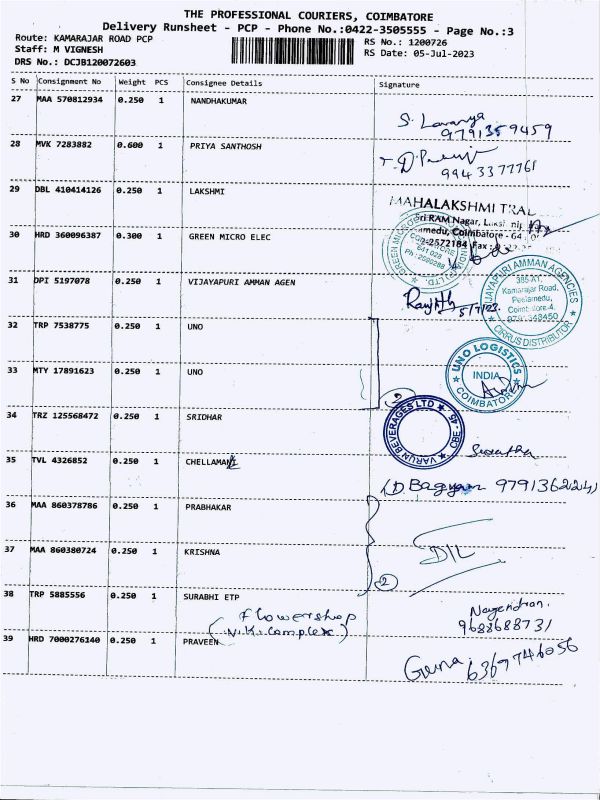 THE PROFESSIONAL COURIERS, COIMBATORE
Delivery Runsheet - PCP - Phone No.:0422-3505555 - Page No.:3
Route: KAMARAJAR ROAD PCP
RS No.: 1200726
Staff: M VIGNESH
RS Date: 05-Jul-2023
DRS No.: DCJB120072603
S No Consignment No Weight PCS Consignee Details Signature
27 MAA 570812934 0.250 1 NANDHAKUMAR
S. Lavanya
9791359459
28 MVK 7283882 0.600 1 PRIYA SANTHOSH
9943377761
29 DBL 410414126 0.250 1 LAKSHMI
MAHALAKSHMI TRA
ri RAM Nagar,
medu, Coimbatore - 64
2-2572184 Fax :
30 HRD 360096387 0.300 1 GREEN MICRO ELEC
GREEN MICRO
641 028
31 DPI 5197078 0.250 1 VIJAYAPURI AMMAN AGEN
Ranjith 5/7/23
VIJAYAPURI AMMAN AGENCIES
Kamarajar Road,
Peelamedu,
CIRRUS DISTRIBUTOR
32 TRP 7538775 0.250 1 UNO
33 MTY 17891623 0.250 1 UNO
UNO LOGISTICS
INDIA
COIMBATORE
2
34 TRZ 125568472 0.250 1 SRIDHAR
VARUN BEVERAGES LTD
CBE - 45
35 TVL 4326852 0.250 1 CHELLAMANI
(D. Bagyam 9791362224)
36 MAA 860378786 0.250 1 PRABHAKAR
37 MAA 860380724 0.250 1 KRISHNA
DIL
2
38 TRP 5885556 0.250 1 SURABHI ETP
Flowershop
(N.K. Complex)
Nagendran.
9688688731
39 HRD 7000276140 0.250 1 PRAVEEN
Guna 6369746056